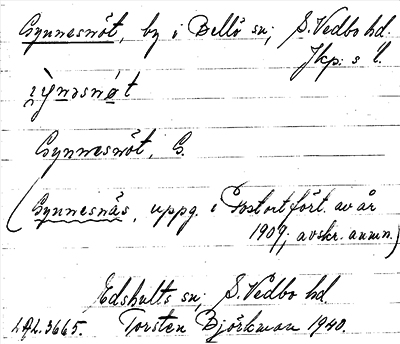 Gynnesnöt, by i Bellö sn; S. Vedbo hd.
Jkp:s l.
Gynnesnöt, G.
(Gynnesnäs, uppg. i Postortfört. av år
1907; avskr. anm.)
Edshults sn; S. Vedbo hd.
3665. Torsten Björkman 1940.